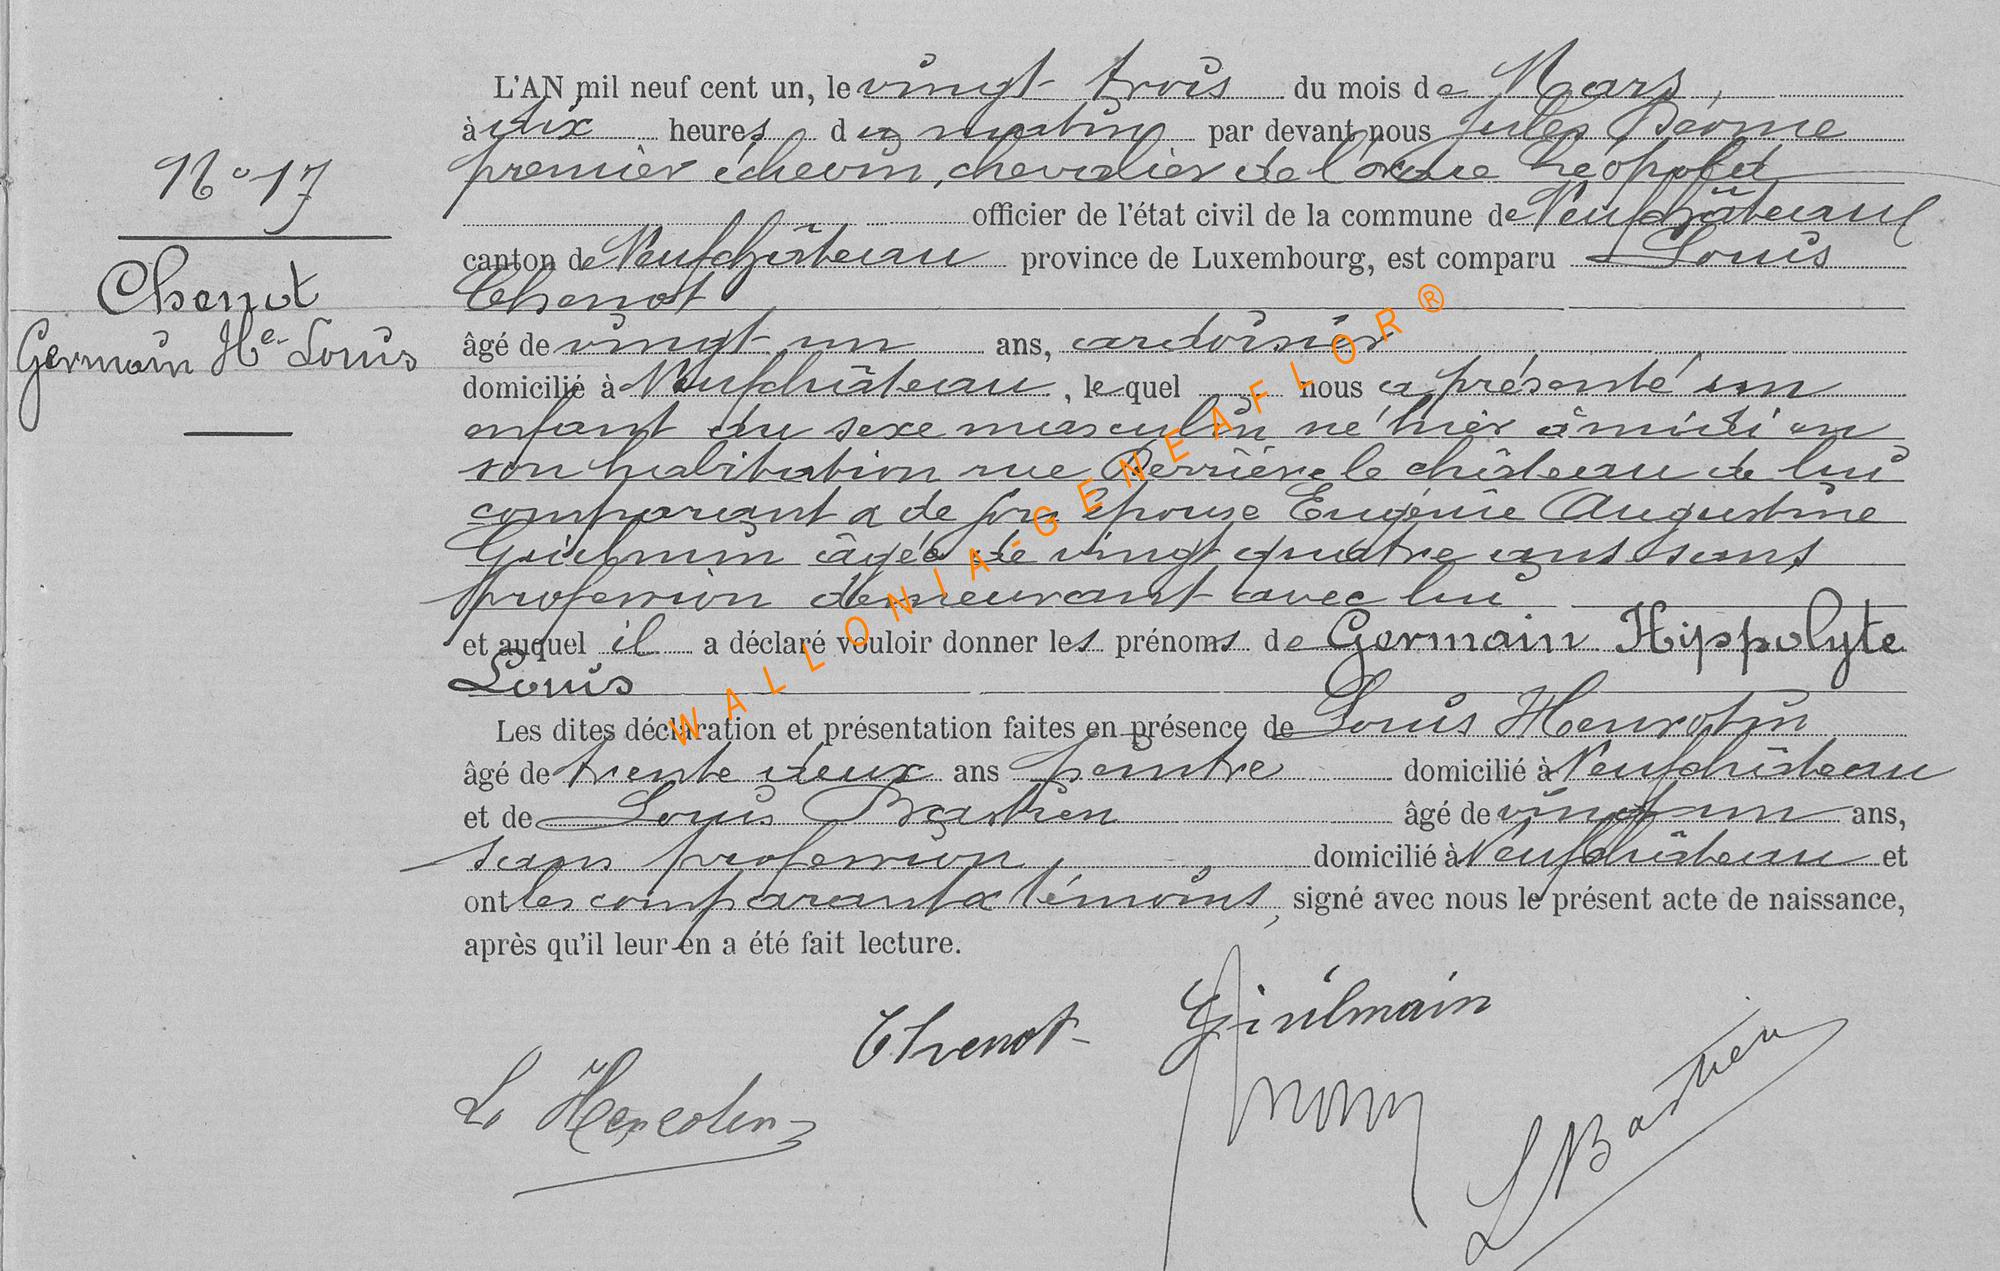 L'AN mil neuf cent un, le vingt trois du mois de Mars,
à dix heures du matin par devant nous Jules
premier échevin, chevalier de l'ordre Léopold
officier de l'état civil de la commune de Neufchâteau
canton de Neufchâteau province de Luxembourg, est comparu Louis
Chenot
âgé de vingt un ans, ardoisier
domicilié à Neufchâteau, lequel nous a présenté un
enfant du sexe masculin né hier à midi en
son habitation rue Derrière le château de lui
comparant & de son épouse Eugénie Augustine
âgée de vingt quatre ans sans
profession demeurant avec lui
et auquel il a déclaré vouloir donner les prénoms de Germain Hippolyte
Louis
Les dites déclaration et présentation faites en présence de Louis Henrotin
âgé de trente deux ans peintre domicilié à Neufchâteau
et de Louis Bastien âgé de vingt un ans,
sans profession, domicilié à Neufchâteau et
ont les comparant & témoins, signé avec nous le présent acte de naissance,
après qu'il leur en a été fait lecture.
No 17
Chenot
Germain He Louis
Chenot
L. Henrotin
L Bastien
WALLONIA-GENEAFLOR ®